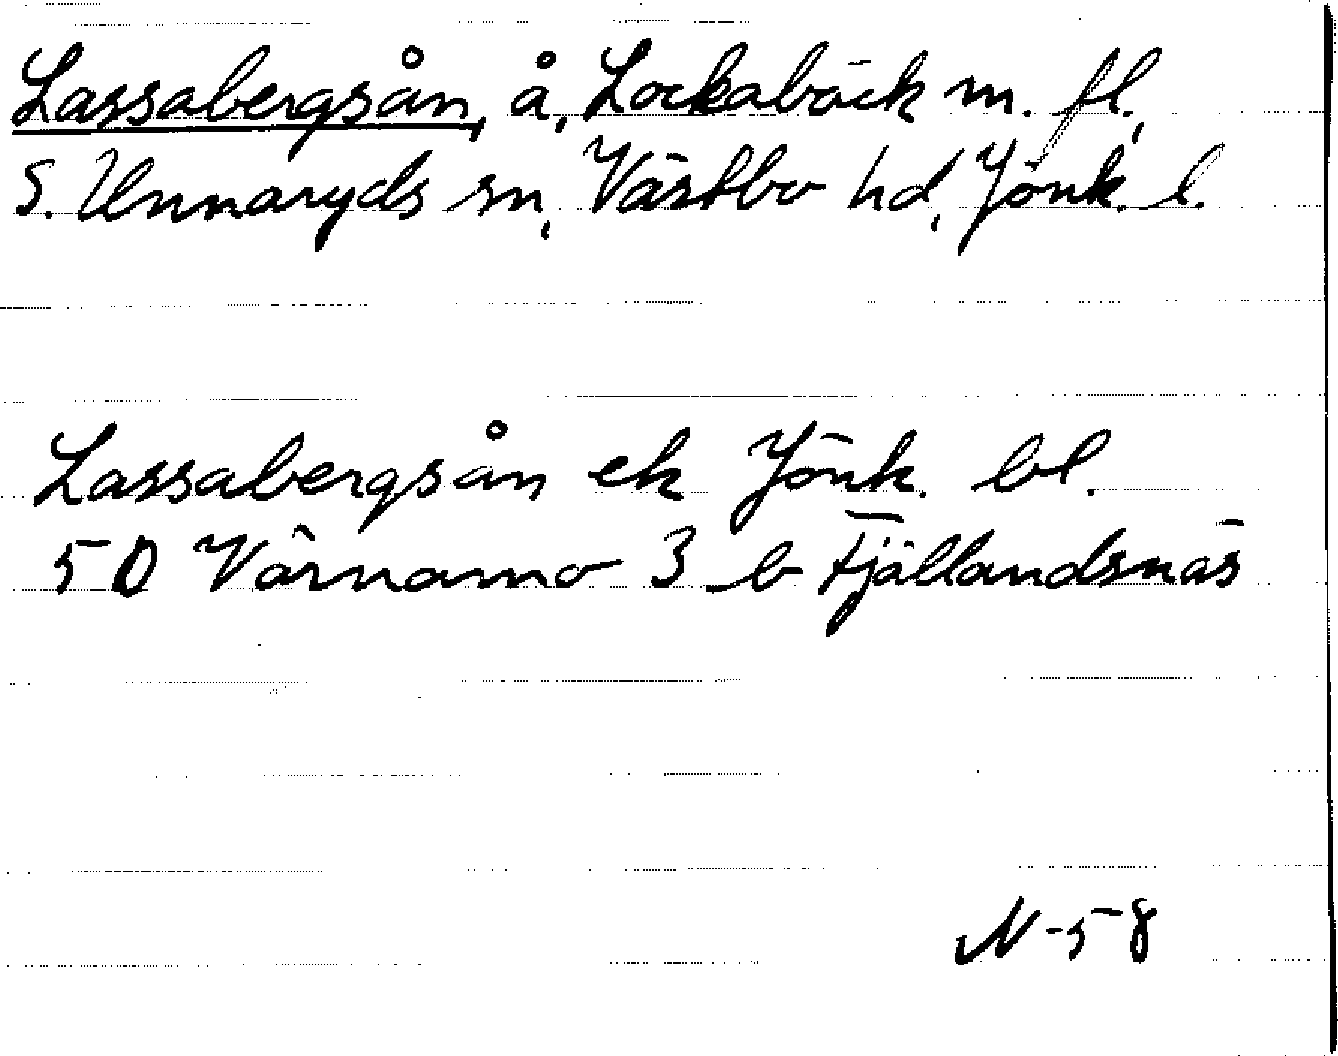 Lassabergsån, å, Lockabäck m. fl.,
S. Unnaryds sn, Västbo hd, Jönk. l.
Lassabergsån ek Jönk. bl.
5 D Värnamo 3 b Fjällandsnäs
N-58